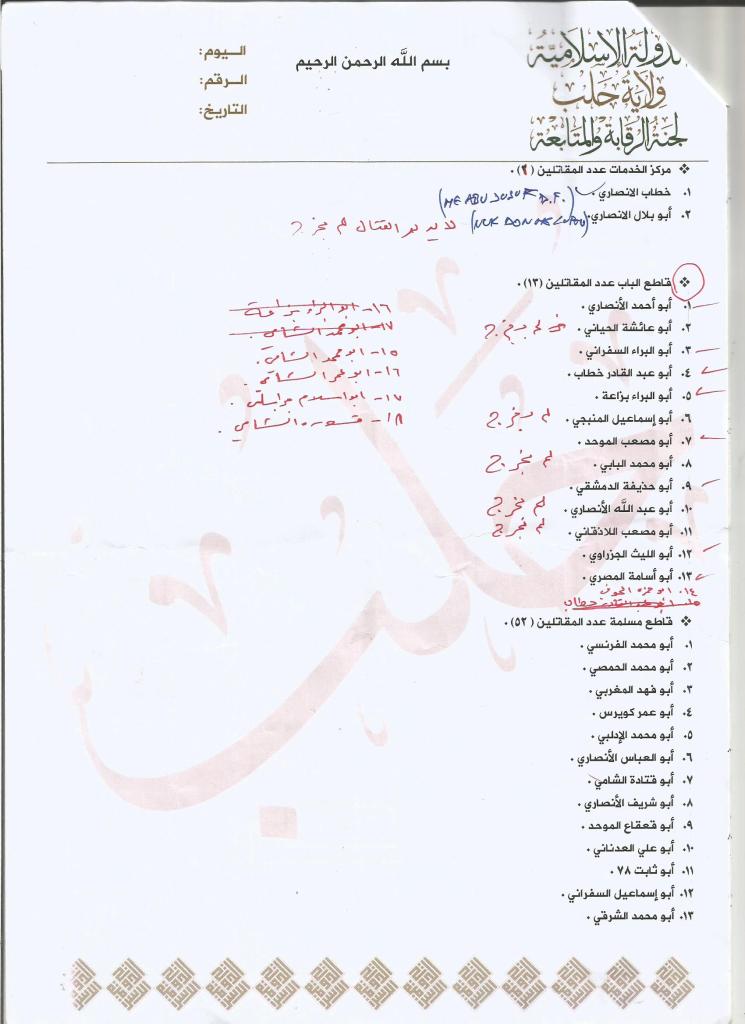 الدولة الإسلامية
ولاية حلب
لجنة الرقابة والمتابعة
بسم الله الرحمن الرحيم
اليوم:
الرقم:
التاريخ:
❖ مركز الخدمات عدد المقاتلين (٢) .
١. خطاب الانصاري
(ME ABU JUSUF D.F.)
٢. أبو بلال الانصاري.
لا يريد القتال لم يخرج
❖ قاطع الباب عدد المقاتلين (١٣) .
١. أبو أحمد الأنصاري .
٢. أبو عائشة الحياني . لم يخرج
٣. أبو البراء السفراني .
٤. أبو عبد القادر خطاب .
٥. أبو البراء بزاعة .
٦. أبو إسماعيل المنبجي . لم يخرج
٧. أبو مصعب الموحد .
٨. أبو محمد البابي . لم يخرج
٩. أبو حذيفة الدمشقي .
١٠. أبو عبد الله الأنصاري . لم يخرج
١١. أبو مصعب اللاذقاني . لم يخرج
١٢. أبو الليث الجزراوي .
١٣. أبو أسامة المصري .
١٤. ابو حمزه
ابو عبد القادر خطاب
١٦- ابو البراء بزاعة
١٧- ابو محمد الشامي
١٥- ابو محمد الشامي .
١٦- ابو عمر الشامي .
١٧- ابو اسلام
١٨- قسوره الشامي .
❖ قاطع مسلمة عدد المقاتلين (٥٢) .
١. أبو محمد الفرنسي .
٢. أبو محمد الحمصي .
٣. أبو فهد المغربي .
٤. أبو عمر كويرس .
٥. أبو محمد الإدلبي .
٦. أبو العباس الأنصاري .
٧. أبو قتادة الشامي .
٨. أبو شريف الأنصاري .
٩. أبو قعقاع الموحد .
١٠. أبو علي العدناني .
١١. أبو ثابت ٧٨ .
١٢. أبو إسماعيل السفراني .
١٣. أبو محمد الشرقي .
حلب